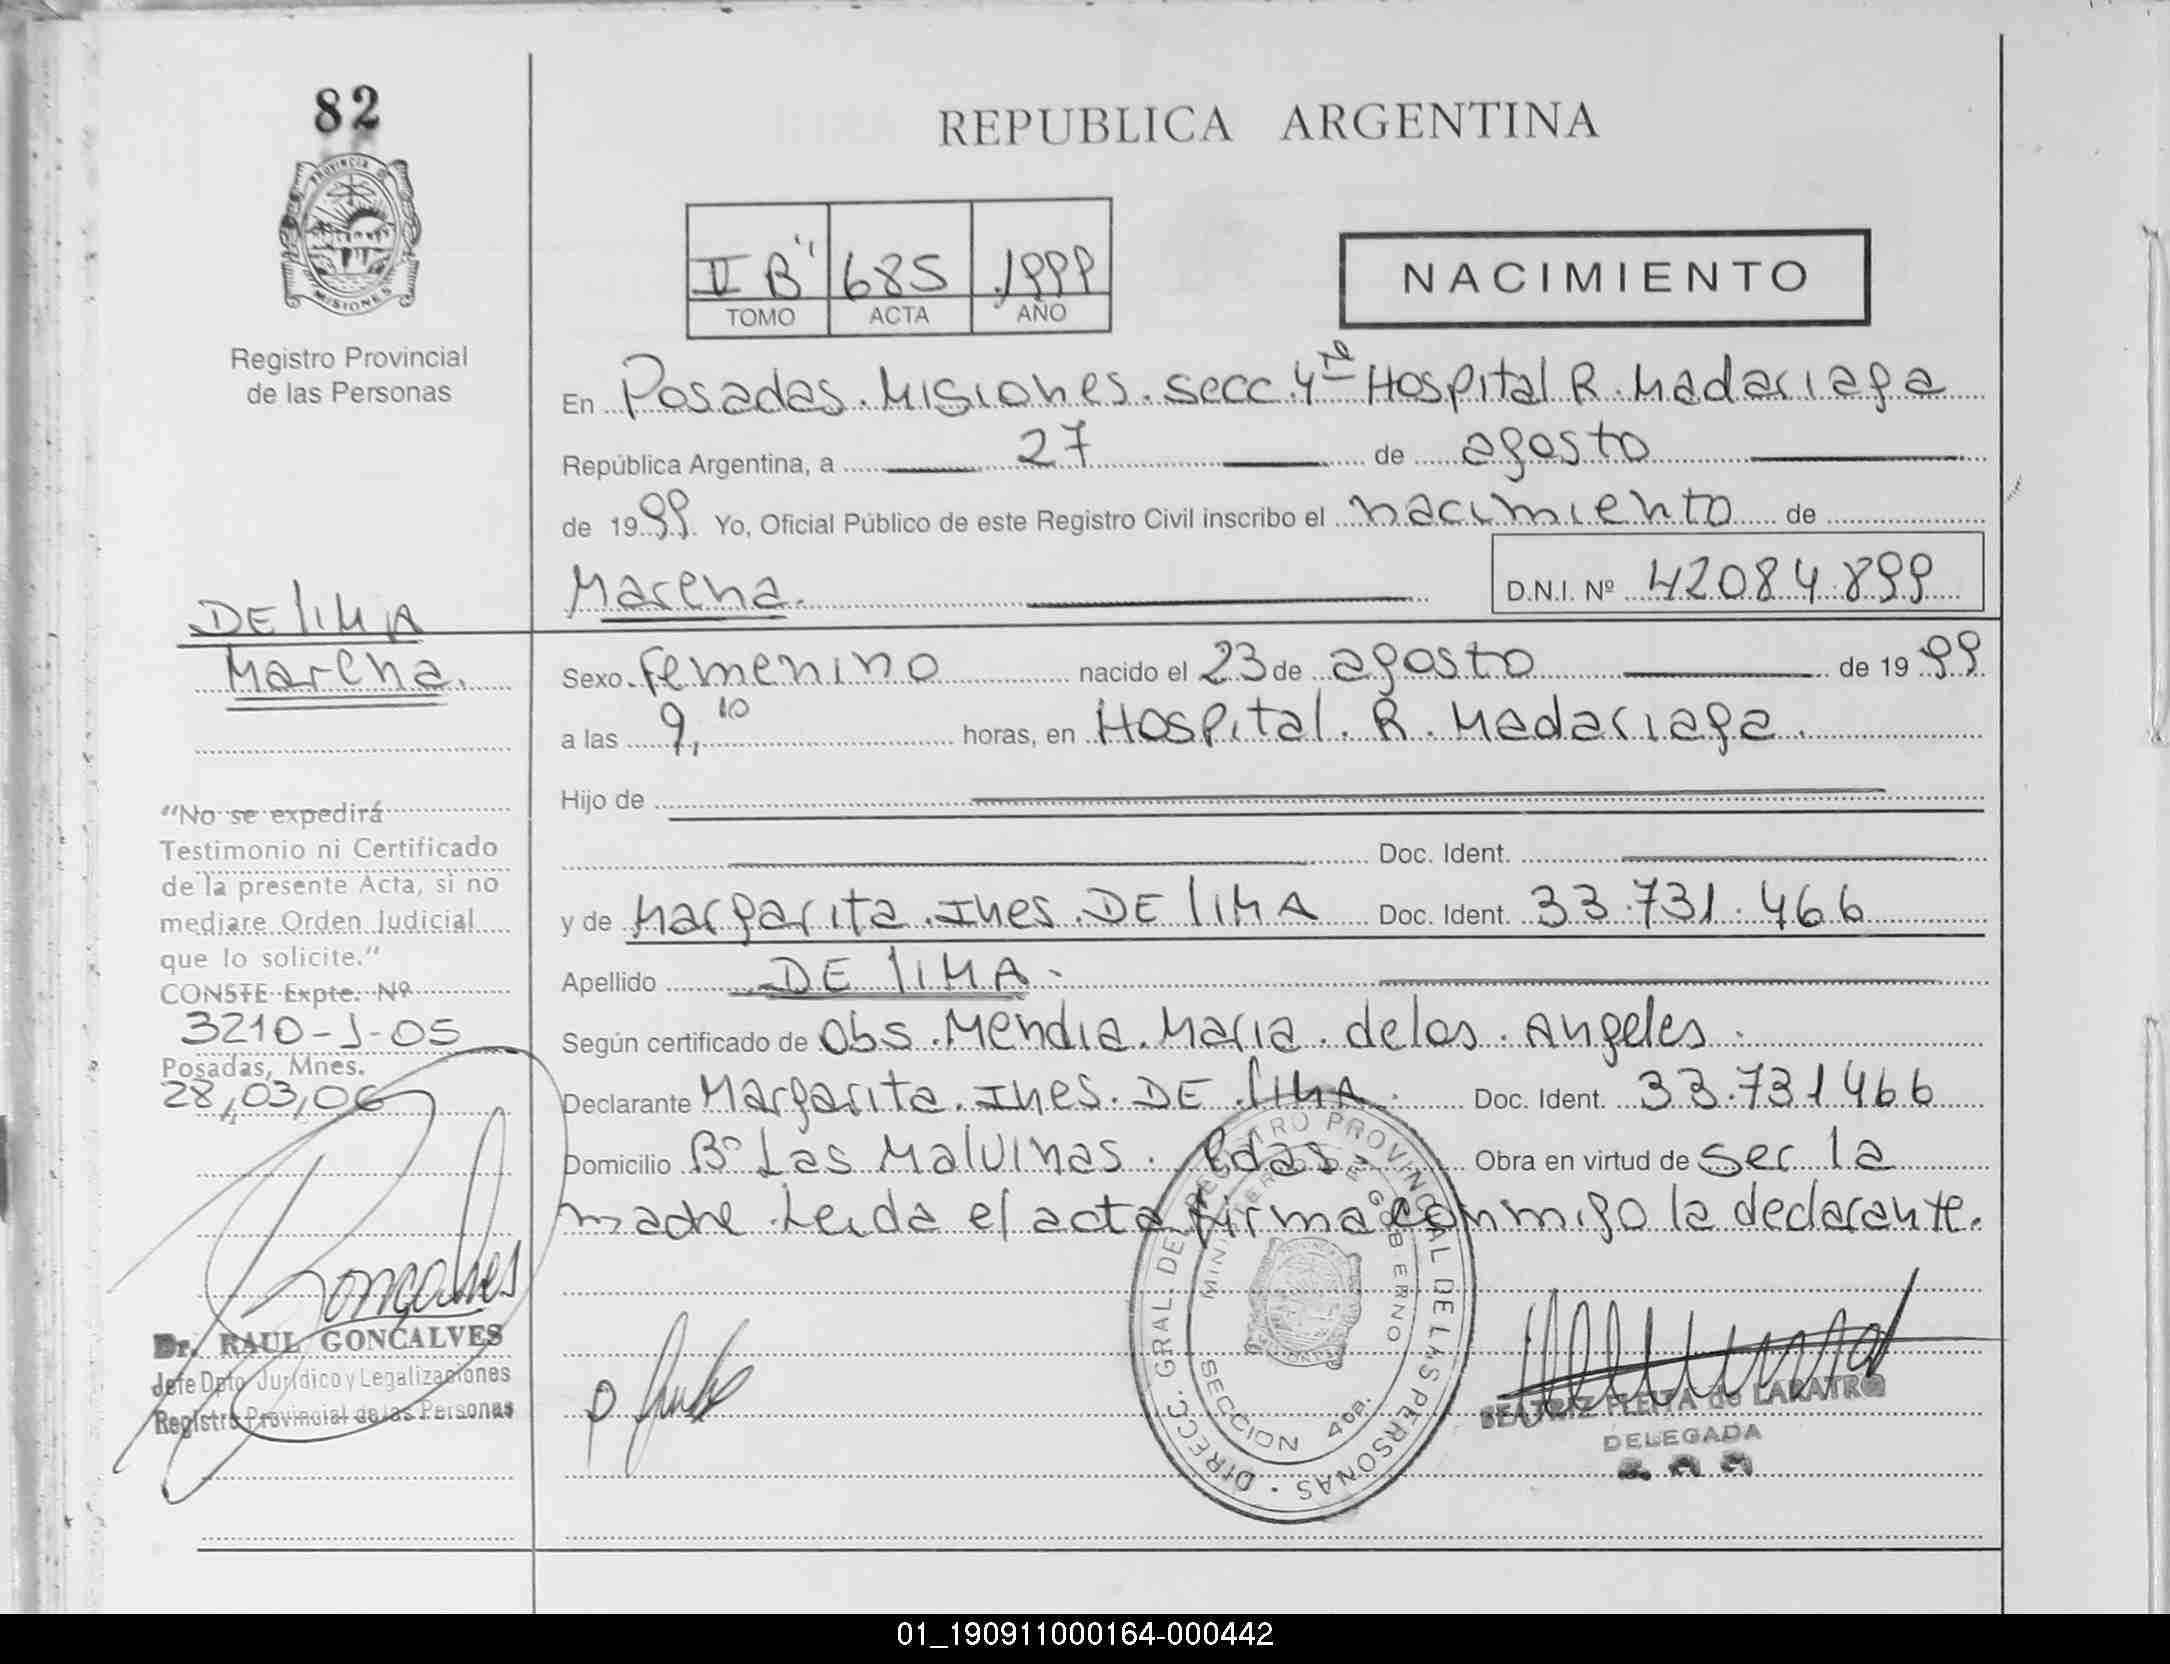 82
PROVINCIA DE
MISIONES
Registro Provincial
de las Personas
REPUBLICA ARGENTINA
II "B" 685 1999
TOMO ACTA AÑO
NACIMIENTO
En Posadas. Misiones. secc. 4ta Hospital R. Madariaga
República Argentina, a 27 de agosto
de 1999 Yo, Oficial Público de este Registro Civil inscribo el nacimiento de
Marena. D.N.I. Nº 42084.899
DE LIMA
Marena.
Sexo femenino nacido el 23 de agosto de 1999
a las 9,10 horas, en Hospital. R. Madariaga.
Hijo de
Doc. Ident.
y de Margarita. Ines. DE LIMA Doc. Ident. 33.731.466
Apellido DE LIMA.
Según certificado de Obs. Mendia. Maria. de los. Angeles.
Declarante Margarita. Ines. DE LIMA. Doc. Ident. 33.731466
Domicilio Bº Las Malvinas. Pdas. Obra en virtud de ser la
madre. Leida el acta firma conmigo la declarante.
"No se expedirá
Testimonio ni Certificado
de la presente Acta, si no
mediare Orden Judicial
que lo solicite."
CONSTE Expte. Nº
3210-J-05
Posadas, Mnes.
28,03,06
Goncalves
Dr. RAUL GONCALVES
Jefe Dpto Jurídico y Legalizaciones
Registro Provincial de las Personas
DIRECC. GRAL. DEL REGISTRO PROVINCIAL DE LAS PERSONAS
MINISTERIO DE GOBIERNO
SECCION 4ta.
BEATRIZ FLEITA de LABATRO
DELEGADA
01_190911000164-000442